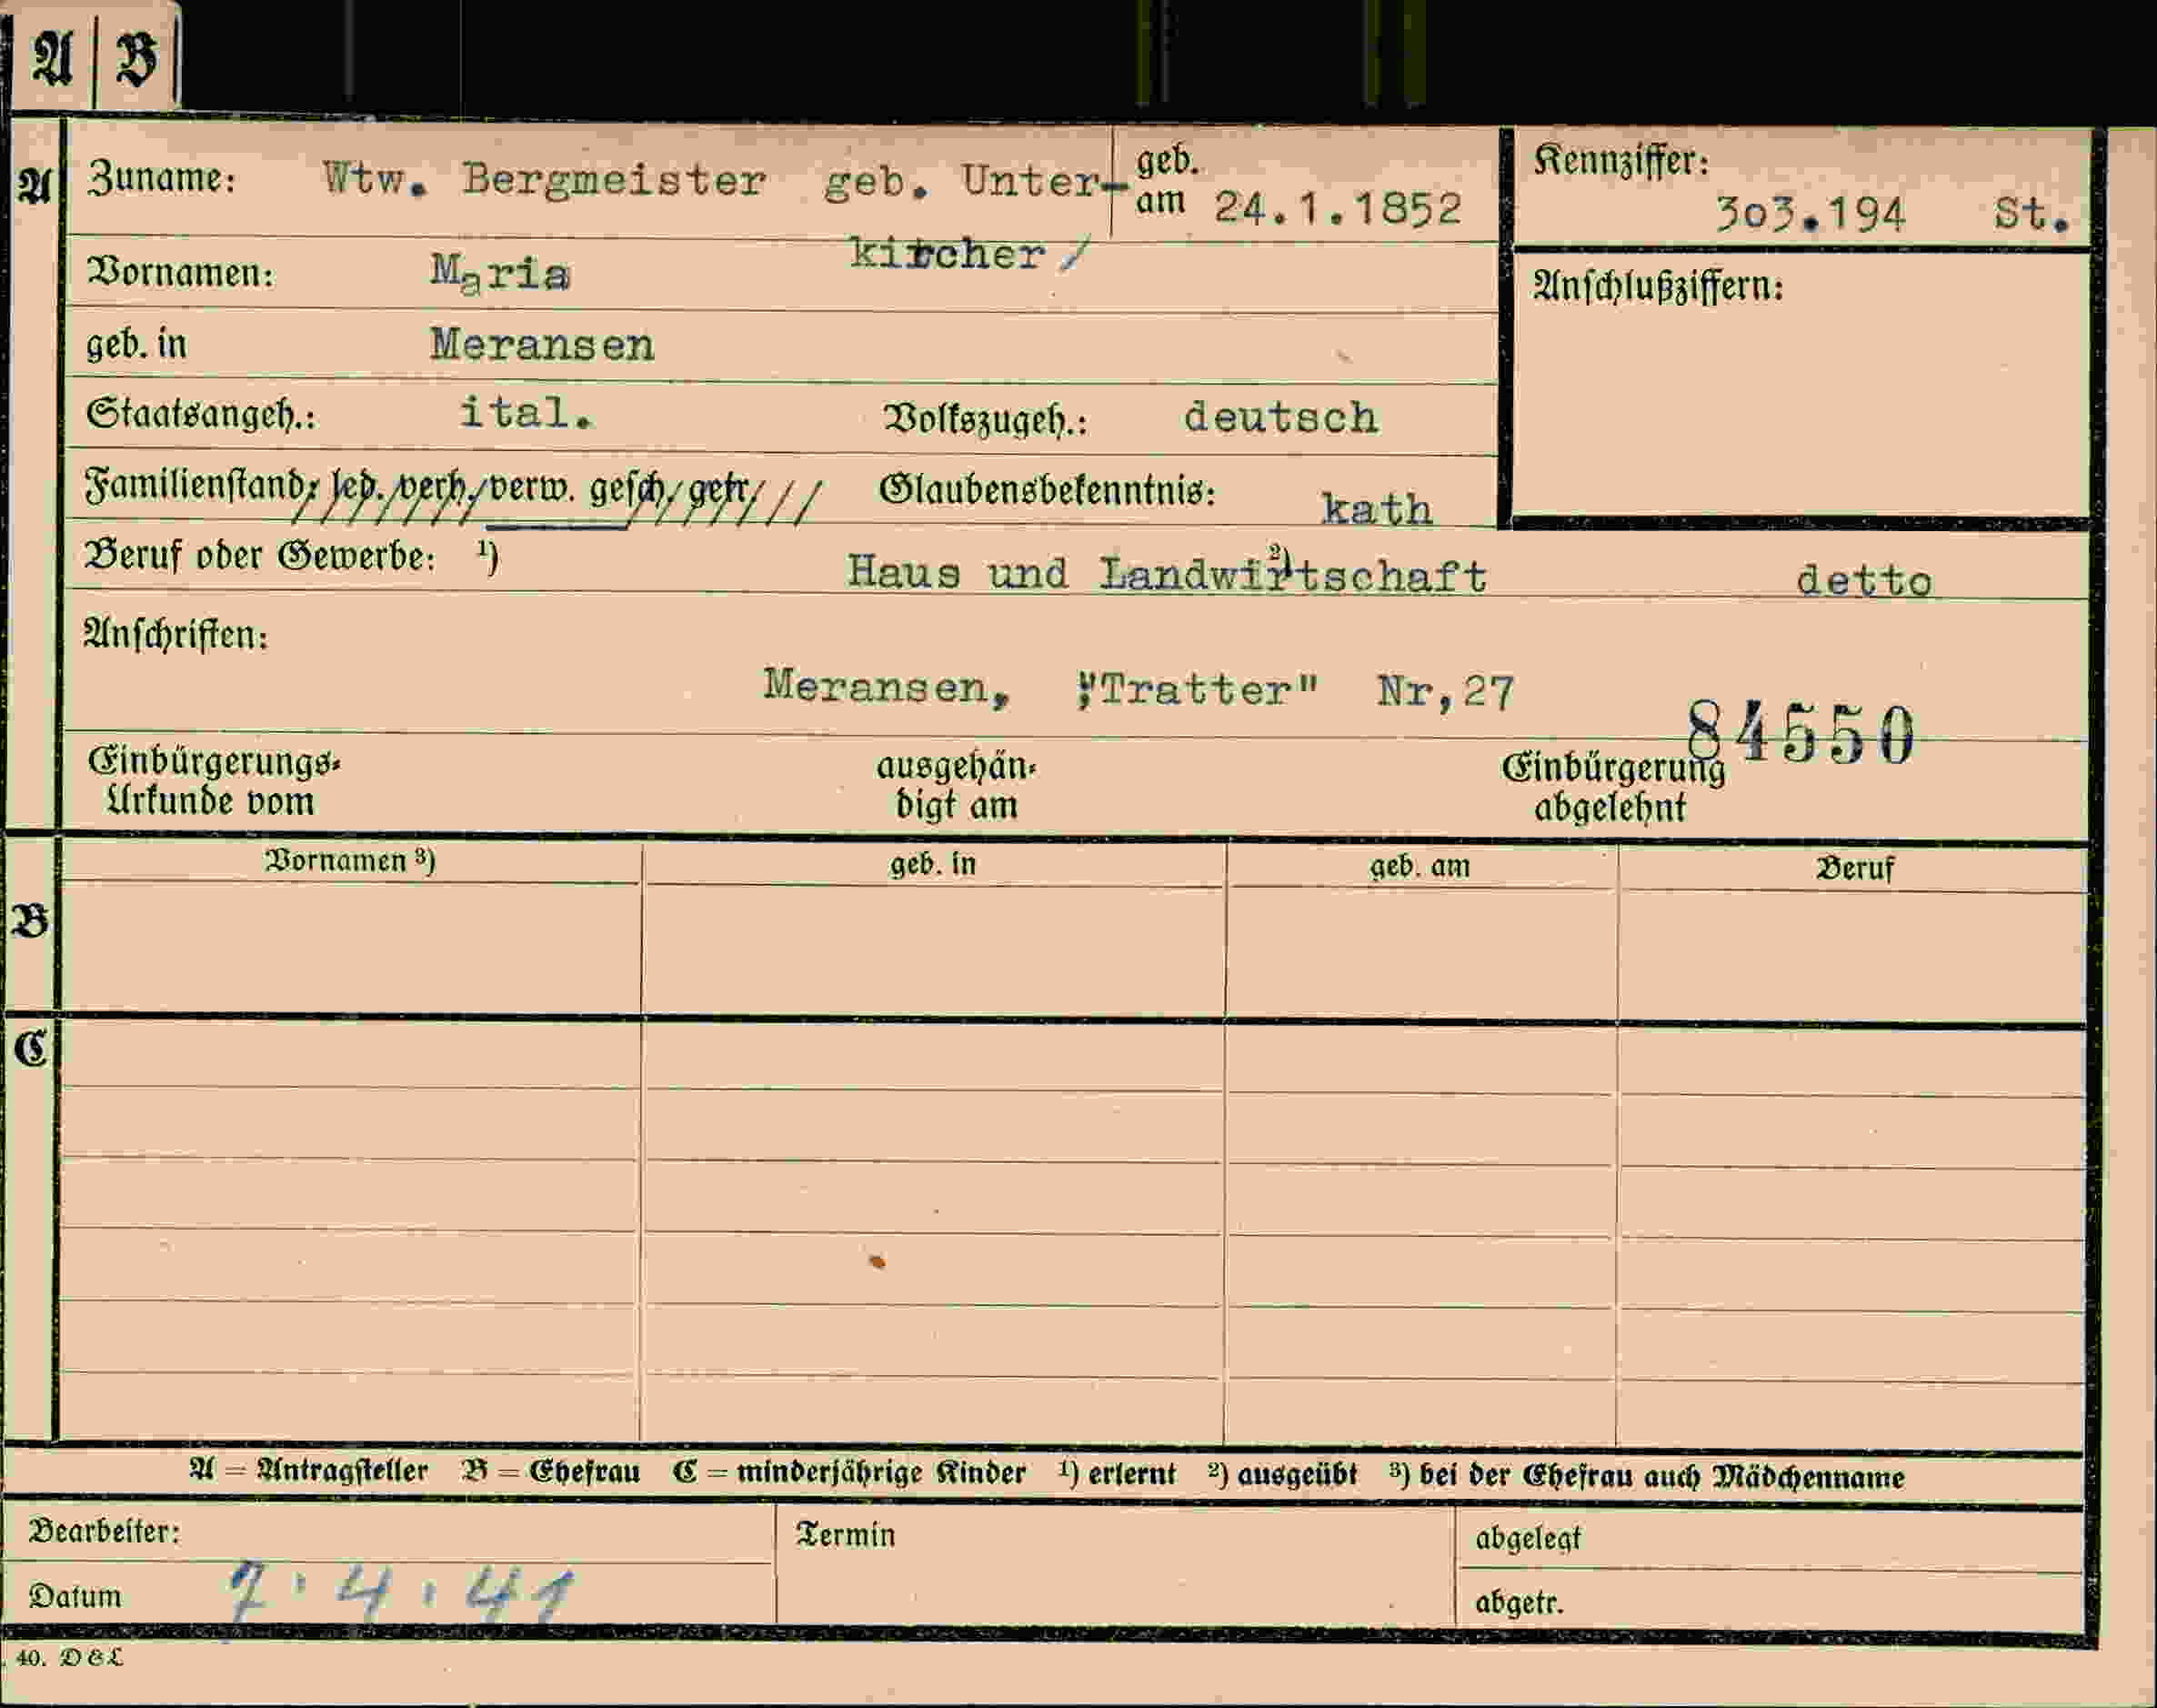 A | B
A Zuname: Wtw. Bergmeister geb. Unter- geb. am 24.1.1852 Kennziffer: 303.194 St.
kircher /
Vornamen: Maria Anschlußziffern:
geb. in Meransen
Staatsangeh.: ital. Volkszugeh.: deutsch
Familienstand: led. verh. verw. gesch. getr. Glaubensbekenntnis: kath
Beruf oder Gewerbe: ¹) Haus und Landwirtschaft ²) detto
Anschriften:
Meransen, "Tratter" Nr,27
84550
Einbürgerungs- ausgehän- Einbürgerung
Urkunde vom digt am abgelehnt
Vornamen ³) geb. in geb. am Beruf
B
C
A = Antragsteller B = Ehefrau C = minderjährige Kinder ¹) erlernt ²) ausgeübt ³) bei der Ehefrau auch Mädchenname
Bearbeiter: Termin abgelegt
Datum 7.4.41 abgetr.
40. D & L